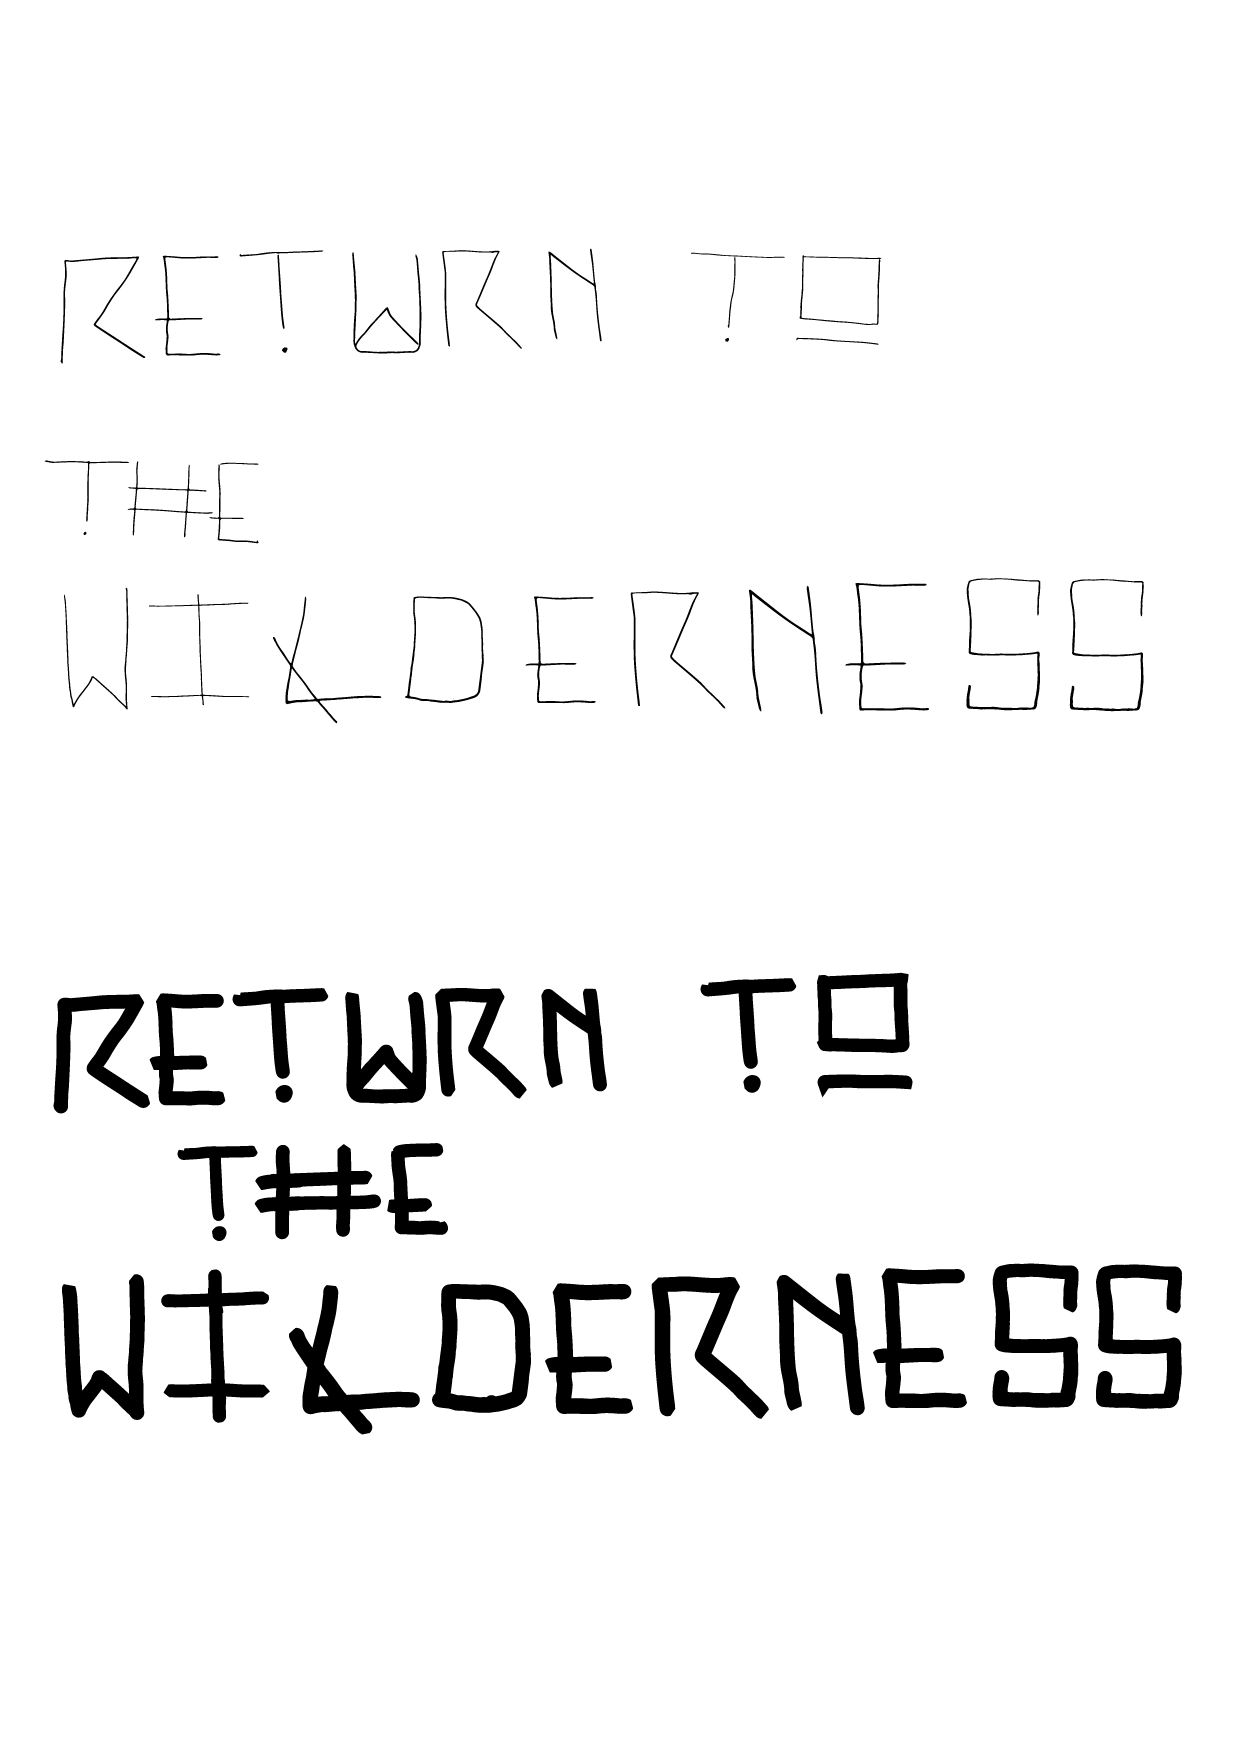 RETURN TO
THE
WILDERNESS
RETURN TO
THE
WILDERNESS